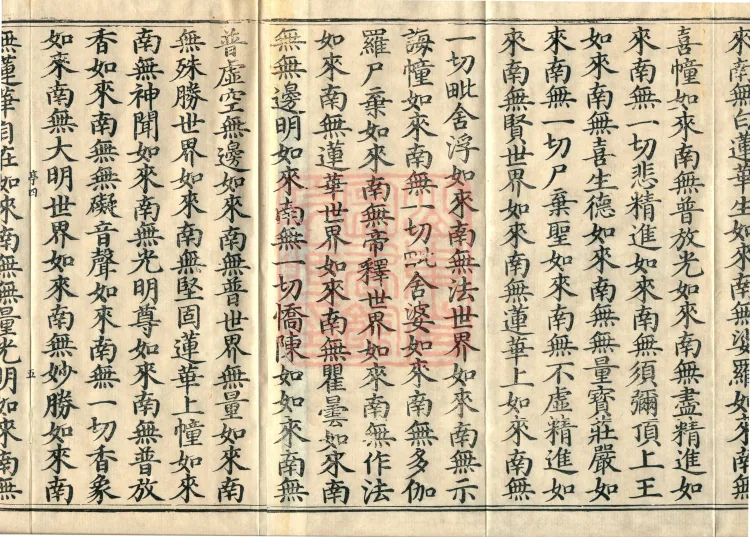 來南無白蓮華生如來南無婆羅如來
喜幢如來南無普放光如來南無盡精進如
來南無一切悲精進如來南無須彌頂上王
如來南無喜生德如來南無無量寶莊嚴如
來南無一切尸棄聖如來南無不虛精進如
來南無賢世界如來南無蓮華上如來南無
一切毗舍浮如來南無法世界如來南無示
誨幢如來南無一切毗舍婆如來南無多伽
羅尸棄如來南無帝釋世界如來南無作法
如來南無蓮華世界如來南無瞿曇如來南
無無邊明如來南無一切憍陳如如來南無
普虛空無邊如來南無普世界無量如來南
無殊勝世界如來南無堅固蓮華上幢如來
南無神聞如來南無光明尊如來南無普放
香如來南無無礙音聲如來南無一切香象
如來南無大明世界如來南無妙勝如來南
無蓮華自在如來南無無量光明如來南無
五